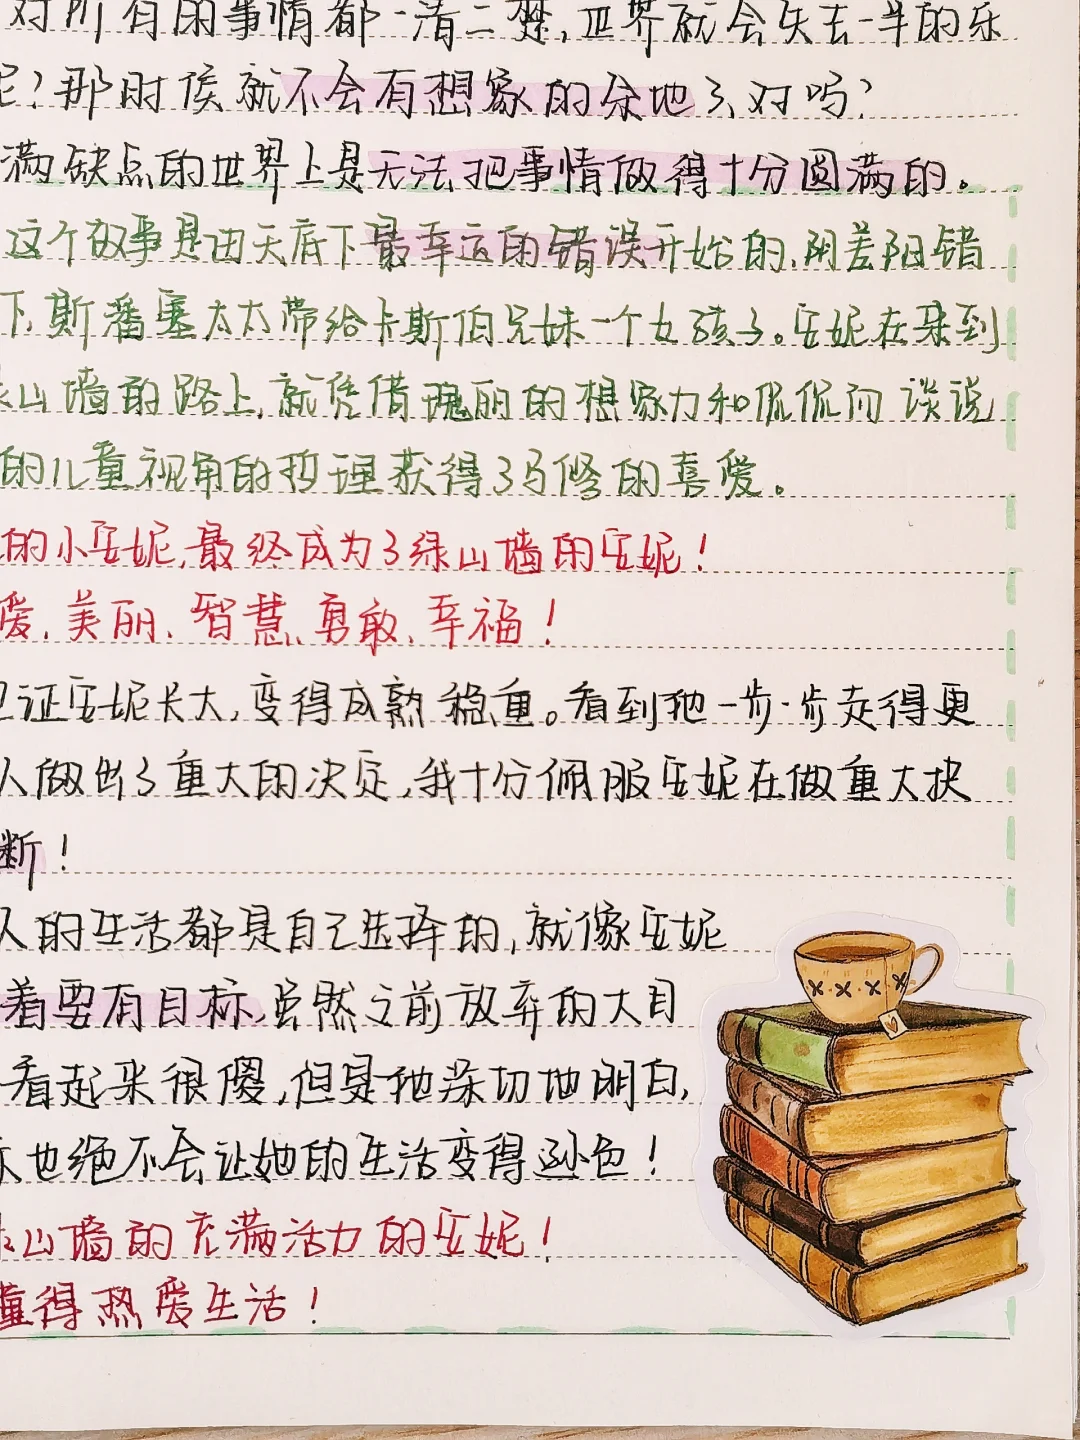 对所有的事情都一清二楚,世界就会失去一半的乐
呢?那时候就不会有想象的余地了、对吗?
满缺点的世界上是无法把事情做得十分圆满的。
这个故事是由天底下最幸运的错误开始的,阴差阳错
下,斯潘塞太太带给卡斯伯兄妹一个女孩子。安妮在来到
山墙的路上,就凭借瑰丽的想象力和侃侃而谈说
的儿童视角的哲理获得了马修的喜爱。
的小安妮,最终成为了绿山墙的安妮!
爱、美丽、智慧、勇敢、幸福!
见证安妮长大,变得成熟稳重。看到她一步一步走得更
人做出了重大的决定,我十分佩服安妮在做重大抉
断!
人的生活都是自己选择的,就像安妮
着要有目标,虽然之前放弃的大目
看起来很傻,但是她深切地明白,
也绝不会让她的生活变得逊色!
山墙的充满活力的安妮!
懂得热爱生活!